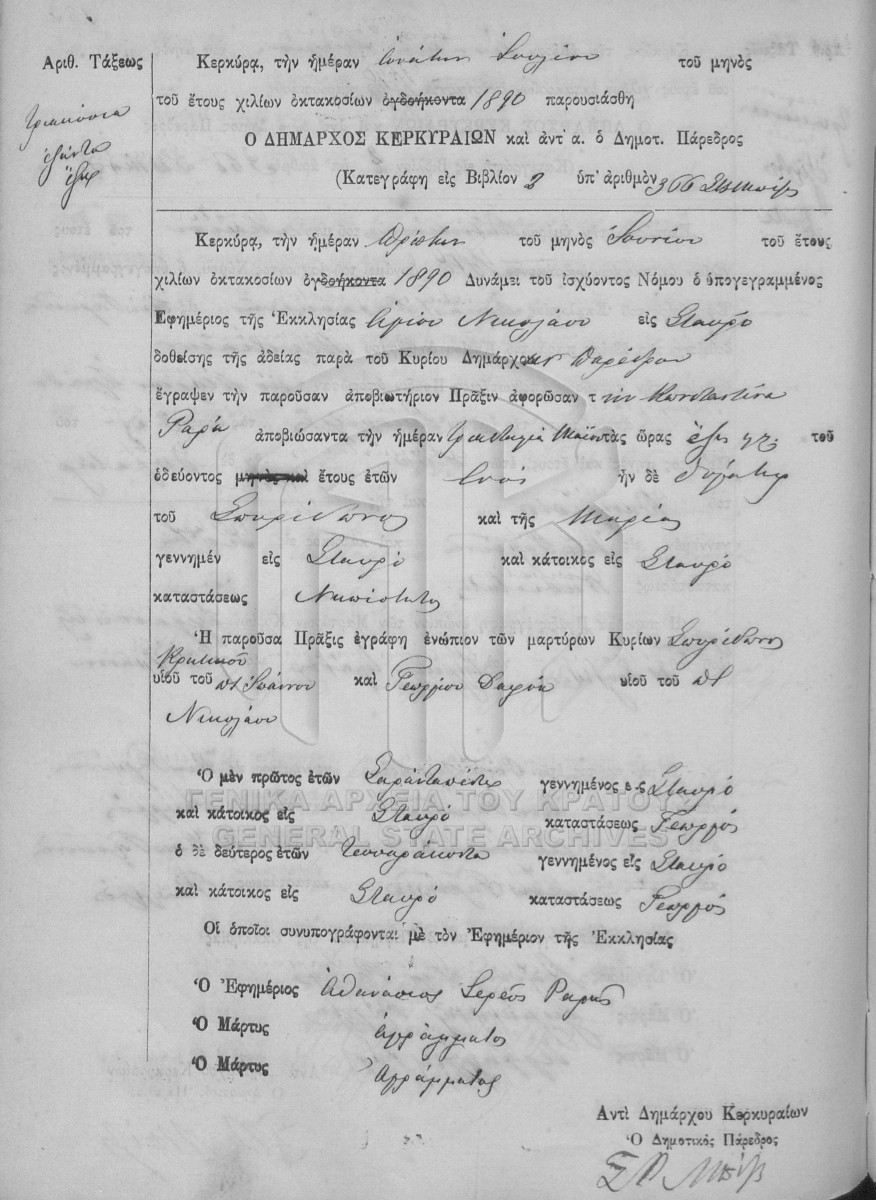 Αριθ. Τάξεως
τριακόσια
ἑξῆντα
ἕξ
Κερκύρᾳ, τὴν ἡμέραν ἐνάτην Ἰουλίου τοῦ μηνὸς
τοῦ ἔτους χιλίων ὀκτακοσίων ὀγδοήκοντα 1890 παρουσιάσθη
Ο ΔΗΜΑΡΧΟΣ ΚΕΡΚΥΡΑΙΩΝ καὶ ἀντ᾽ α. ὁ Δημοτ. Πάρεδρος
(Κατεγράφη εἰς Βιβλίον 2 ὑπ᾽ ἀριθμὸν 366
Κερκύρᾳ, τὴν ἡμέραν πρώτην τοῦ μηνὸς Ἰουνίου τοῦ ἔτους
χιλίων ὀκτακοσίων ὀγδοήκοντα 1890 Δυνάμει τοῦ ἰσχύοντος Νόμου ὁ ὑπογεγραμμένος
Ἐφημέριος τῆς Ἐκκλησίας Ἁγίου Νικολάου εἰς Σταυρὸ
δοθείσης τῆς ἀδείας παρὰ τοῦ Κυρίου Δημάρχου Παρέδρου
ἔγραψεν τὴν παροῦσαν ἀποβιωτήριον Πρᾶξιν ἀφορῶσαν τ ὴν Κωνσταντίνα
Ραρῆ ἀποβιώσαντα τὴν ἡμέραν Μαΐου τὰς ὥρας ἕξη τοῦ
ὁδεύοντος μηνὸς καὶ ἔτους ἐτῶν ἑνός ἦν δὲ θυγάτηρ
τοῦ Σπυρίδωνος καὶ τῆς Μαρίας
γεννημέν εἰς Σταυρὸ καὶ κάτοικος εἰς Σταυρό
καταστάσεως Νηπιότητος
Ἡ παροῦσα Πρᾶξις ἐγράφη ἐνώπιον τῶν μαρτύρων Κυρίων Σπυρίδωνος
Κρητικοῦ
υἱοῦ τοῦ ποτ Ἰωάννου καὶ Γεωργίου υἱοῦ τοῦ ποτ
Νικολάου
Ὁ μὲν πρῶτος ἐτῶν Σαράντα πέντε γεννημένος εἰς Σταυρό
καὶ κάτοικος εἰς Σταυρό καταστάσεως Γεωργός
ὁ δὲ δεύτερος ἐτῶν τεσσαράκοντα γεννημένος εἰς Σταυρό
καὶ κάτοικος εἰς Σταυρό καταστάσεως Γεωργός
Οἱ ὁποῖοι συνυπογράφονται μὲ τὸν Ἐφημέριον τῆς Ἐκκλησίας
Ὁ Ἐφημέριος Ἀθανάσιος Ἱερεὺς Ραρῆς
Ὁ Μάρτυς Ἀγράμματος
Ὁ Μάρτυς Ἀγράμματος
Αντὶ Δημάρχου Κερκυραίων
Ὁ Δημοτικὸς Πάρεδρος
ΓΕΝΙΚΑ ΑΡΧΕΙΑ ΤΟΥ ΚΡΑΤΟΥΣ
GENERAL STATE ARCHIVES